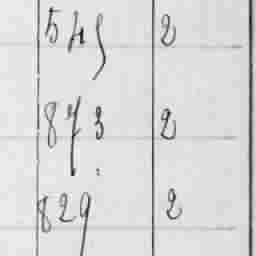 545 2
873 2
829 2